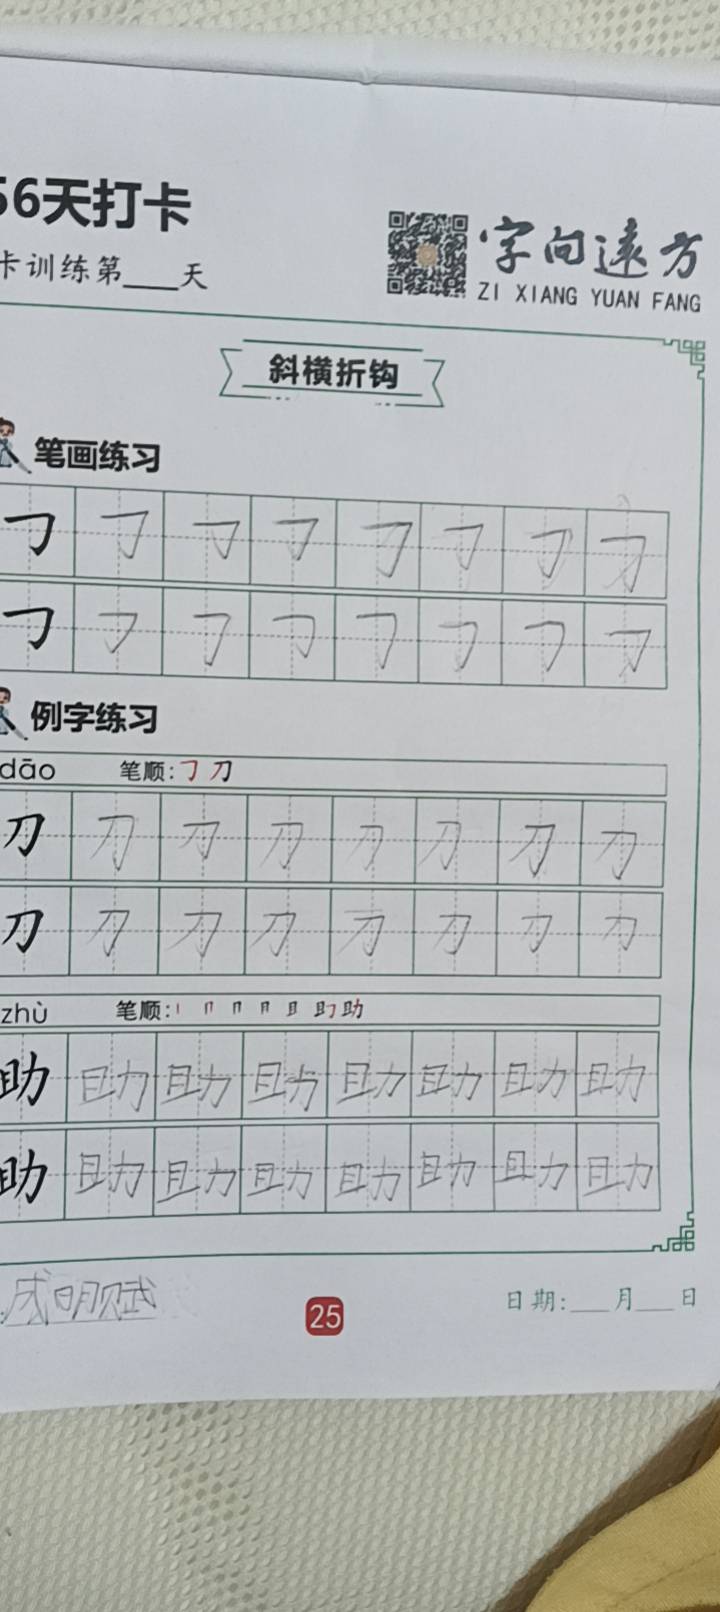 56天打卡
卡训练第____天
字向远方
ZI XIANG YUAN FANG
斜横折钩
笔画练习
㇆ ㇆ ㇆ ㇆ ㇆ ㇆ ㇆ ㇆
㇆ ㇆ ㇆ ㇆ ㇆ ㇆ ㇆ ㇆
例字练习
dāo 笔顺:㇆ 刀
刀 刀 刀 刀 刀 刀 刀 刀
刀 刀 刀 刀 刀 刀 刀 刀
zhù 笔顺: 助
助 助 助 助 助 助 助 助
助 助 助 助 助 助 助 助
成明赋
25
日期:____月____日